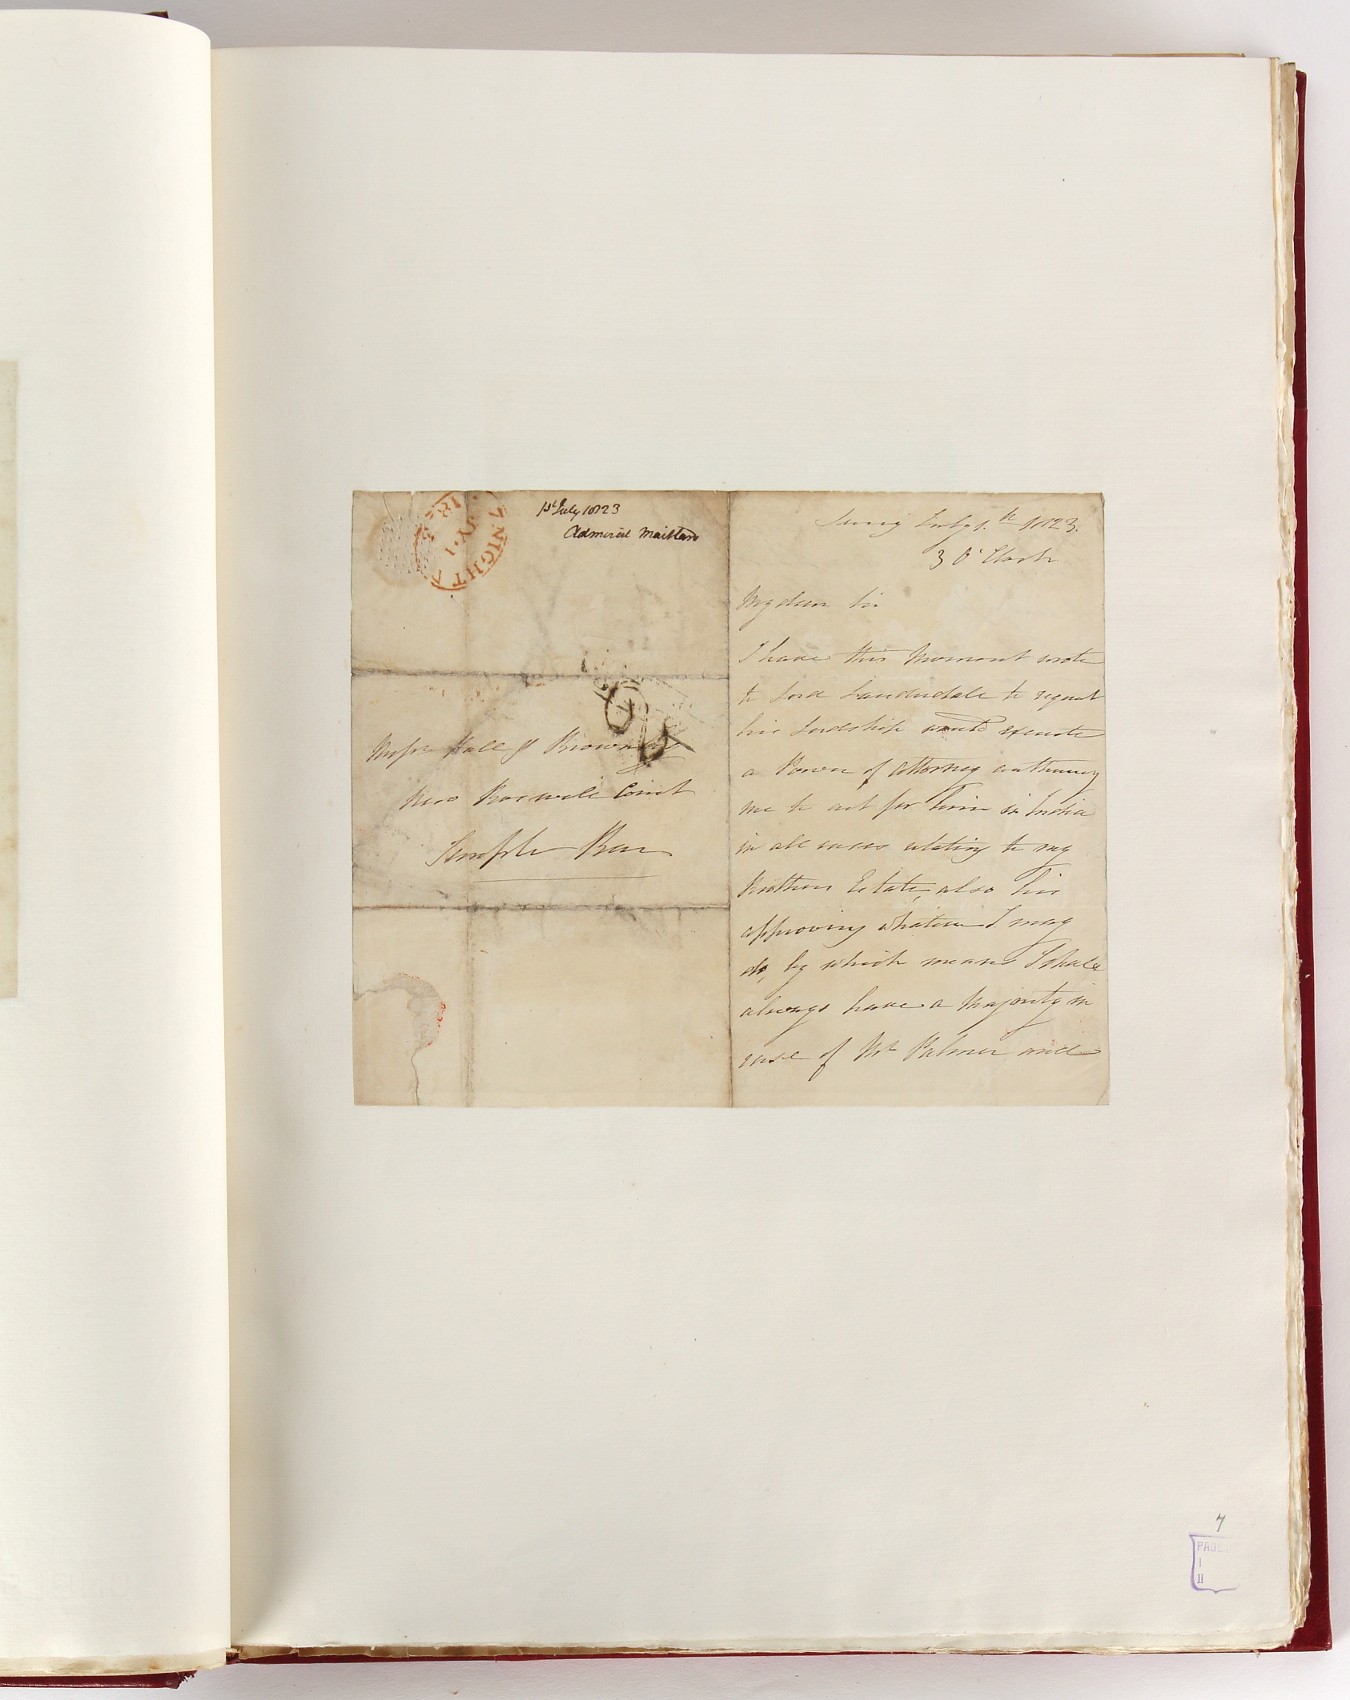 1st July 1823
Admiral Maitland
NIGHT
JY. 1
18
Messrs Hall & Brownley
New Boswell Court
Temple Bar
July 1st 1823.
3 O'Clock
My dear Sir
I have this Moment wrote
to Lord Lauderdale to request
his Lordship would execute
a Power of Attorney authorising
me to act for him in India
in all cases relating to my
Brothers Estate, also his
approving whatever I may
do, by which means I shall
always have a Majority in
case of Mr Palmer and
7
PAGE
I
II